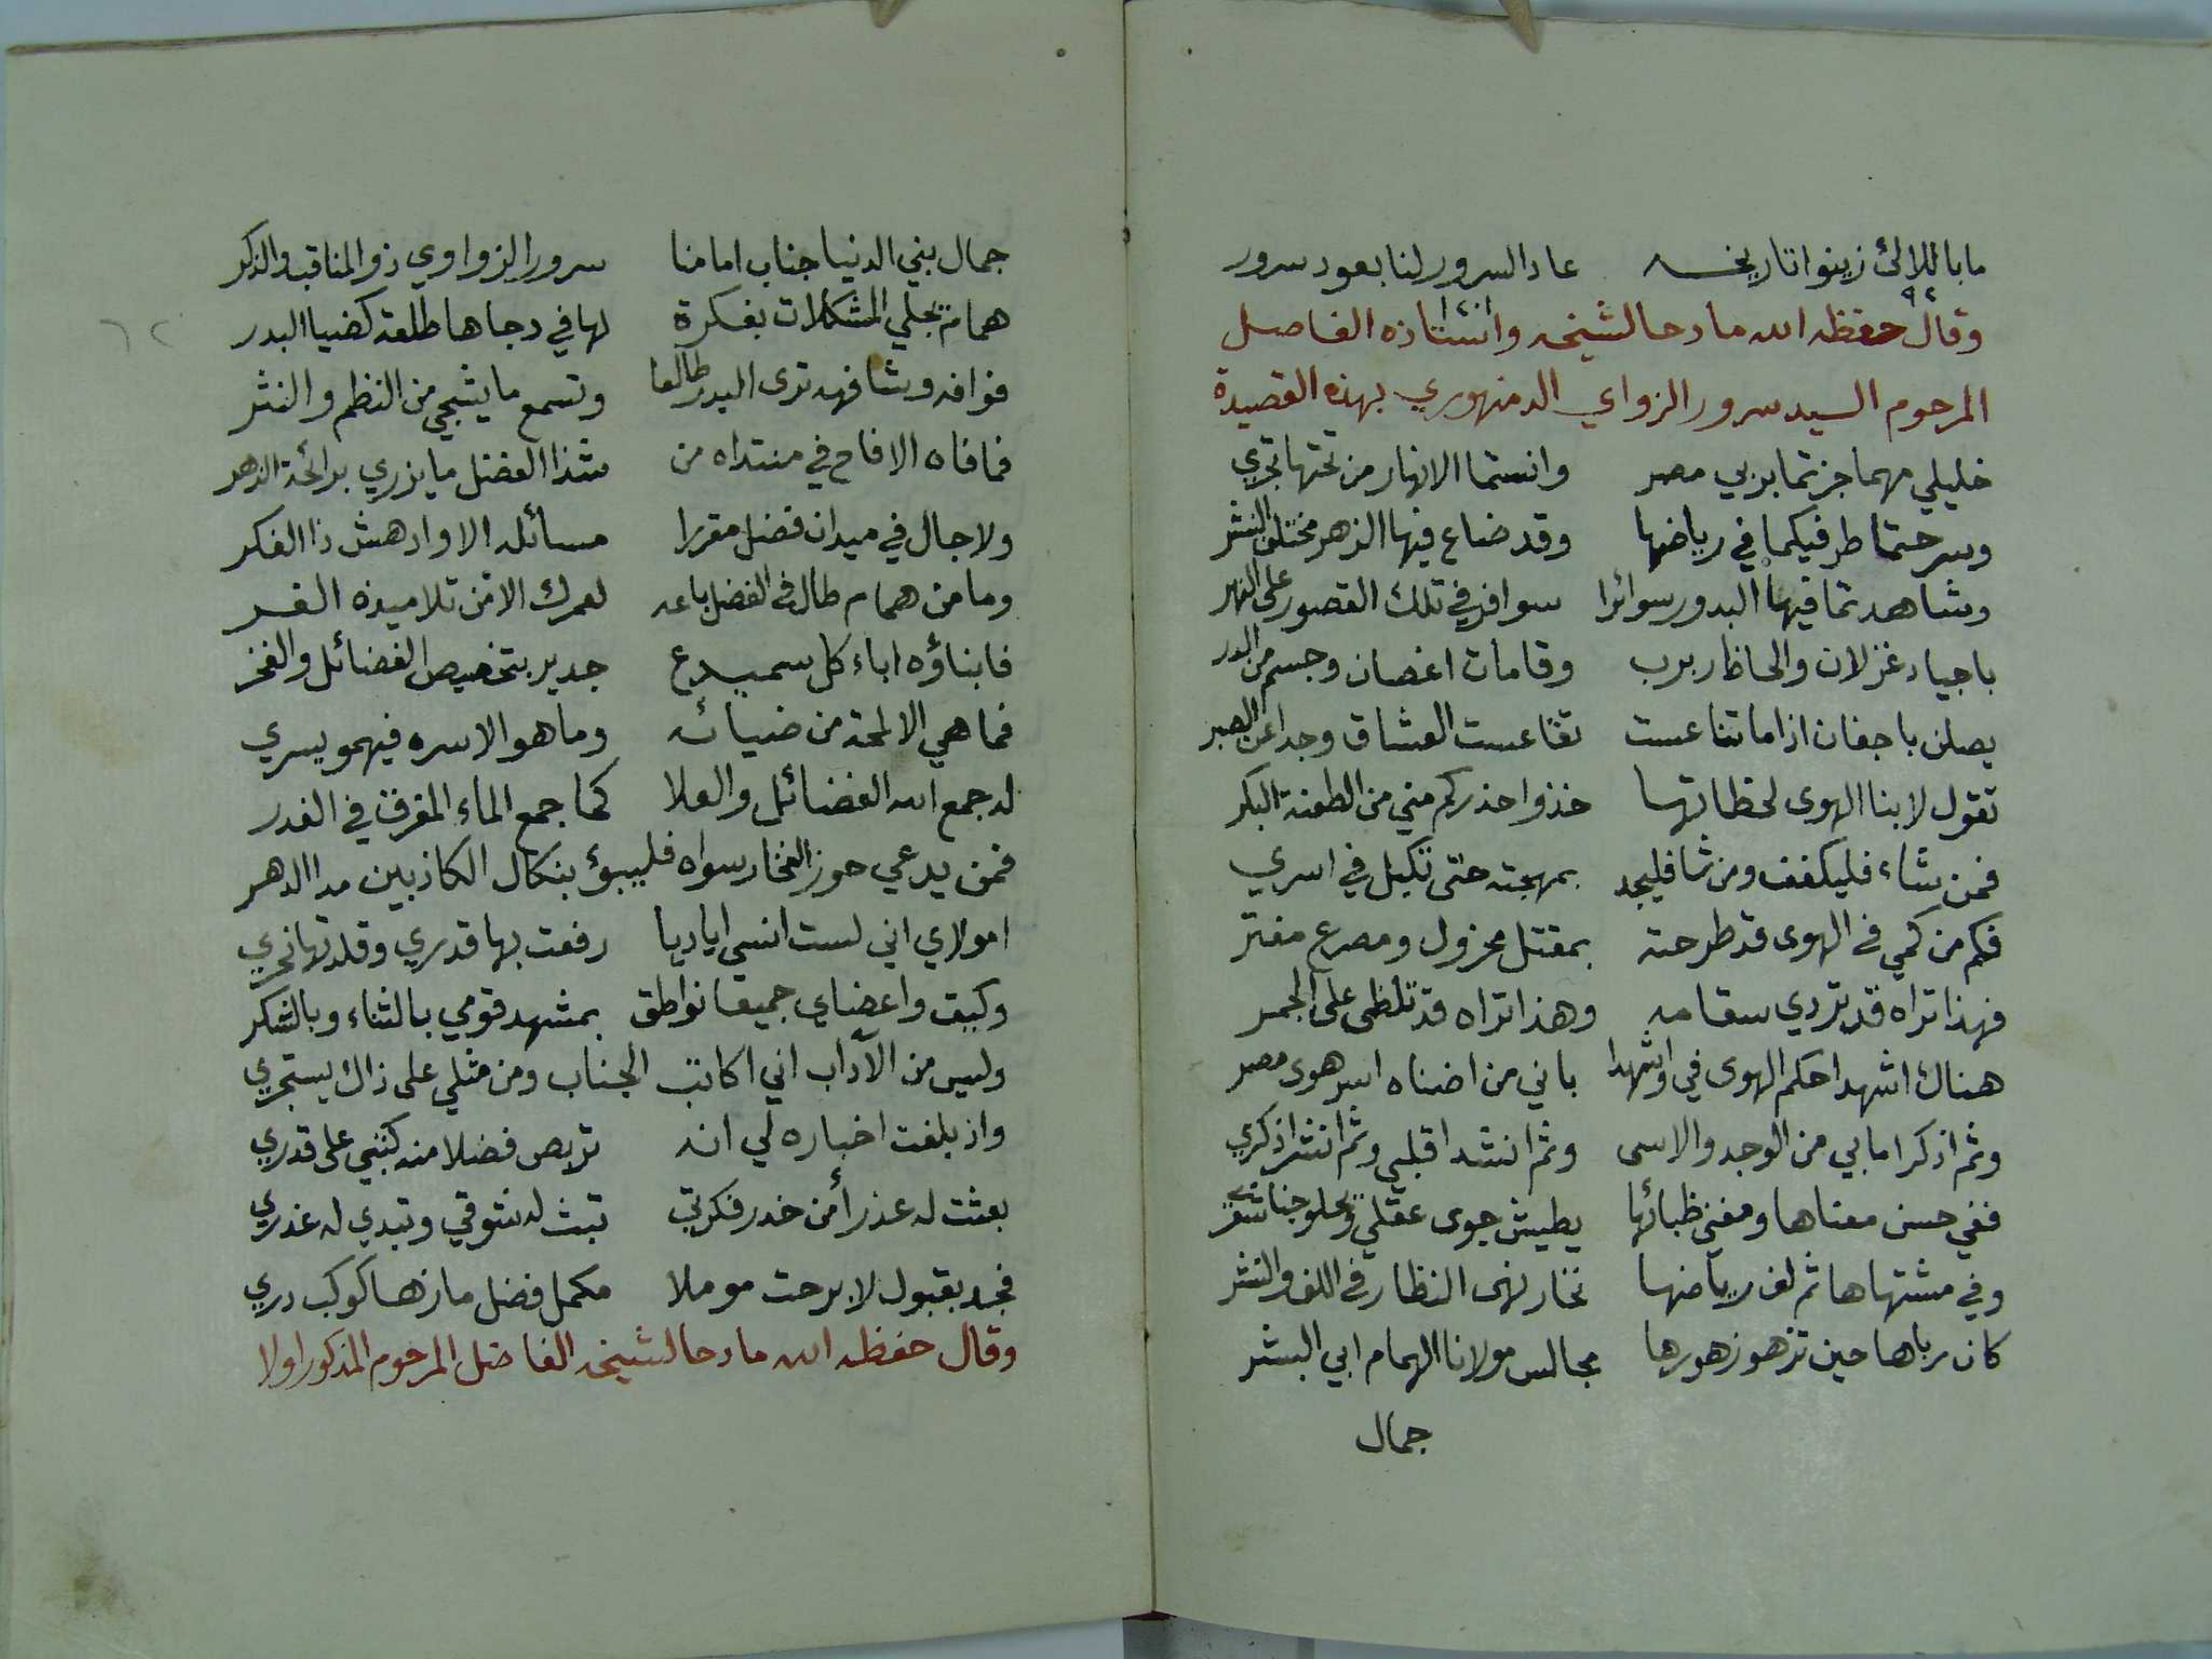 ما باللالئ زينوا تاريخه عاد السرور لنا بعود سرور
٩٢
وقال حفظه الله مادحا لشيخه واستاذه الفاضل
المرحوم السيد سرور الزواي الدمنهوري بهذه القصيدة
خليلي مهما جزتما بربي مصر وانستما الانهار من تحتها تجري
وسرحتما طرفيكما في رياضها وقد ضاع فيها الزهر مختلف النشر
وشاهدتما فيها البدور سوائرا سوافر في تلك القصور على النهر
باجياد غزلان والحاظ ربرب وقامات اغصان وجسم من الدر
يصلن باجفان اذا ما تناعست تقاعست العشاق وجدا عن الصبر
تقول لابنا الهوى لحظاتها خذوا حذركم مني من الطعنة البكر
فمن شاء فليكفف ومن شا فليجد بمهجته حتى تكبل في اسري
فكم من كمي في الهوى قد طرحته بمقتل مخزول ومصرع مفتر
فهذا تراه قد يردي سقامه وهذا تراه قد تلظى على الجمر
هناك اشهدا حكم الهوى في واشهدا باني من اضناه اسر هوى مصر
وثم اذكرا ما بي من الوجد والاسى وثم انشدا قلبي وثم انشرا ذكري
ففي حسن معناها ومغنى ظبائها يطيش جوى عقلي ويحلو جنا شعر
وفي مشتهاها ثم لف رياضها تحار نهى النظار في اللف والنشر
كان رباها حين تزهو زهورها مجالس مولانا الهمام ابي البشر
جمال
جمال بني الدنيا جناب امامنا سرور الزواوي ذو المناقب والذكر
همام تجلي المشكلات بفكرة لها في دجاها طلعة كضيا البدر
فوافه وشافهه ترى البدر طالعا وتسمع ما يشجي من النظم والنثر
فما فاه الا فاح في منتداه من شذا الفضل ما يزري برائحة الزهر
ولا جال في ميدان فضل مقررا مسائله الا وادهش ذا الفكر
وما من همام طال في الفضل باعه لعمرك الا من تلاميذه الغر
فابناؤه اباء كل سميدع جدير بتخصيص الفضائل والفخر
فما هي الا لمحة من ضيائه وما هو الا سره فيهمو يسري
له جمع الله الفضائل والعلا كما جمع الماء المفرق في الغدر
فمن يدعي حوز الفخار سواه فليبؤ بنكال الكاذبين مدا الدهر
امولاي اني لست انسى اياديا رفعت بها قدري وقلدتها نحري
وكيف واعضاي جميعا نواطق بمشهد قومي بالثناء وبالشكر
وليس من الآداب اني اكاتب الجناب ومن مثلي على ذاك يستجري
واذ بلغت اخباره لي انه تربص فضلا منه كتبي على قدري
بعثت له عذرا من خدر فكرتي تبث له شوقي وتبدي له عذري
فجد بقبول لا برحت موملا مكمل فضل ما زها كوكب دري
وقال حفظه الله مادحا لشيخه الفاضل المرحوم المذكور اولا